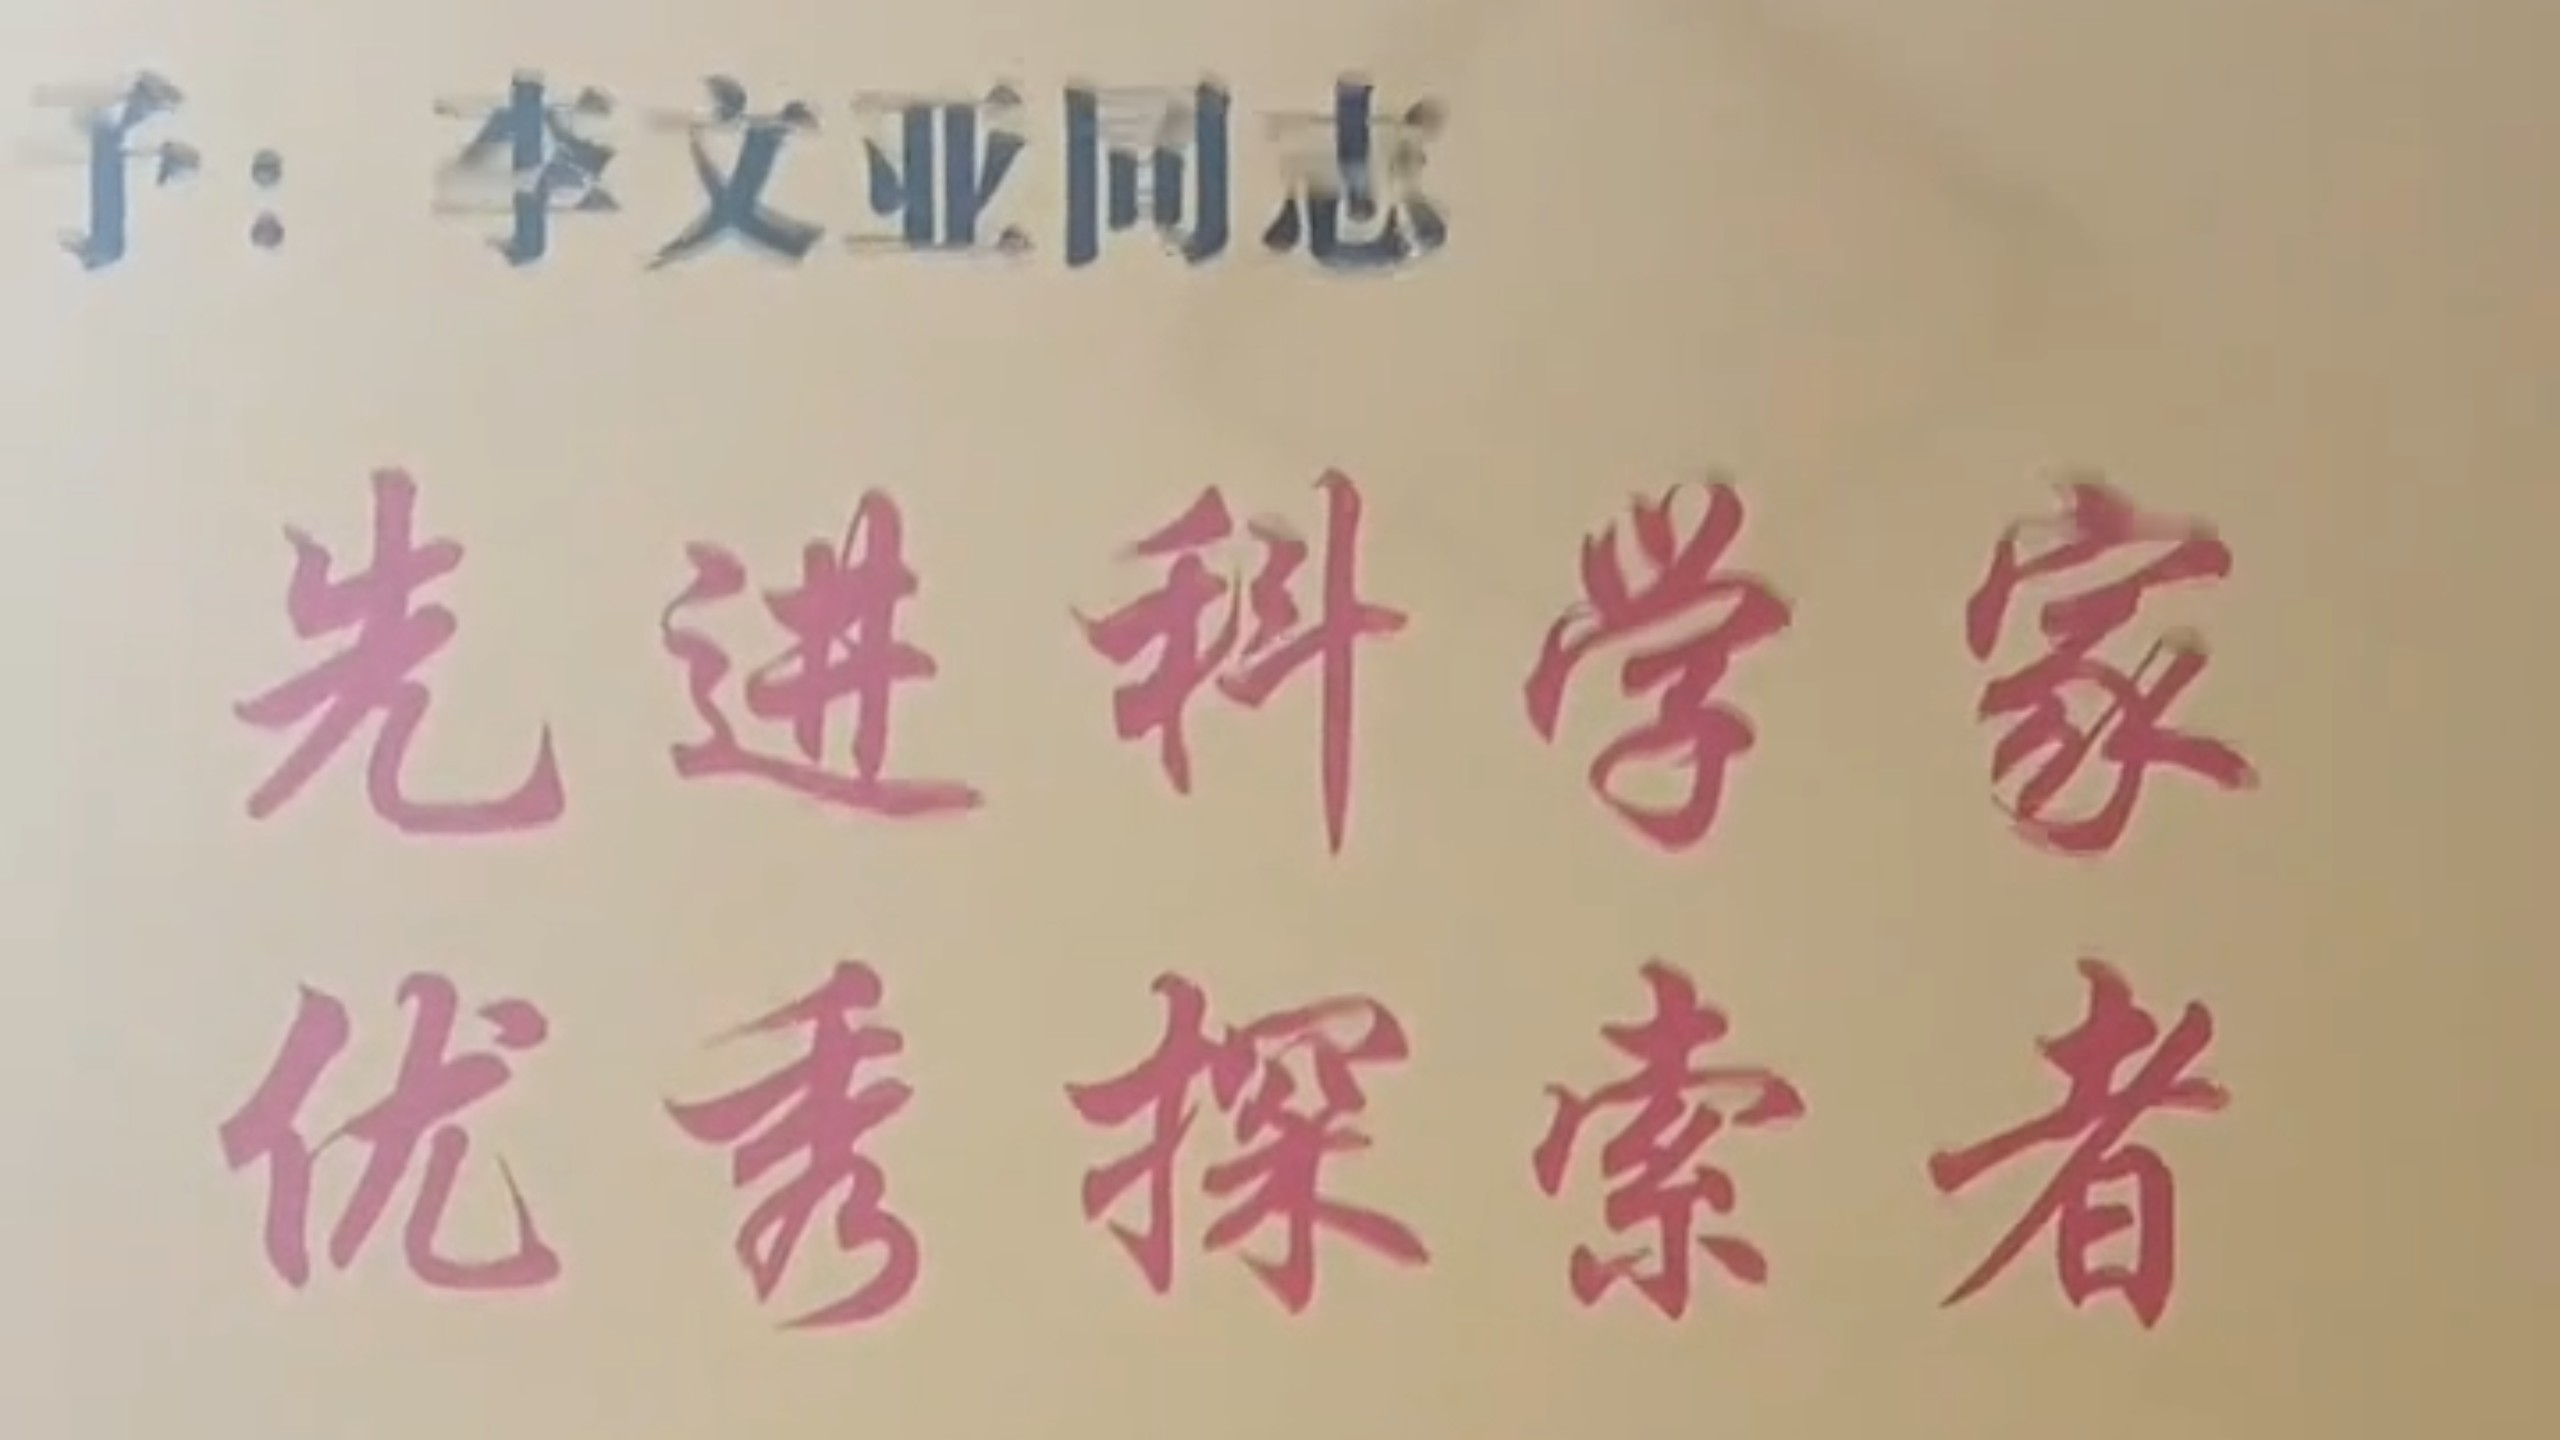 予：李文亚同志
先进科学家
优秀探索者